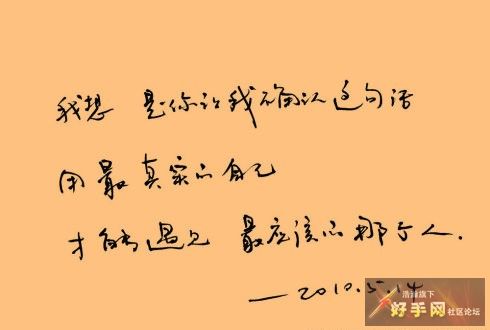 我想 是你让我确认这句话
用最真实的自己
才能遇见 最应该的那个人.
—2010.5.14
浩方旗下
好手网社区论坛